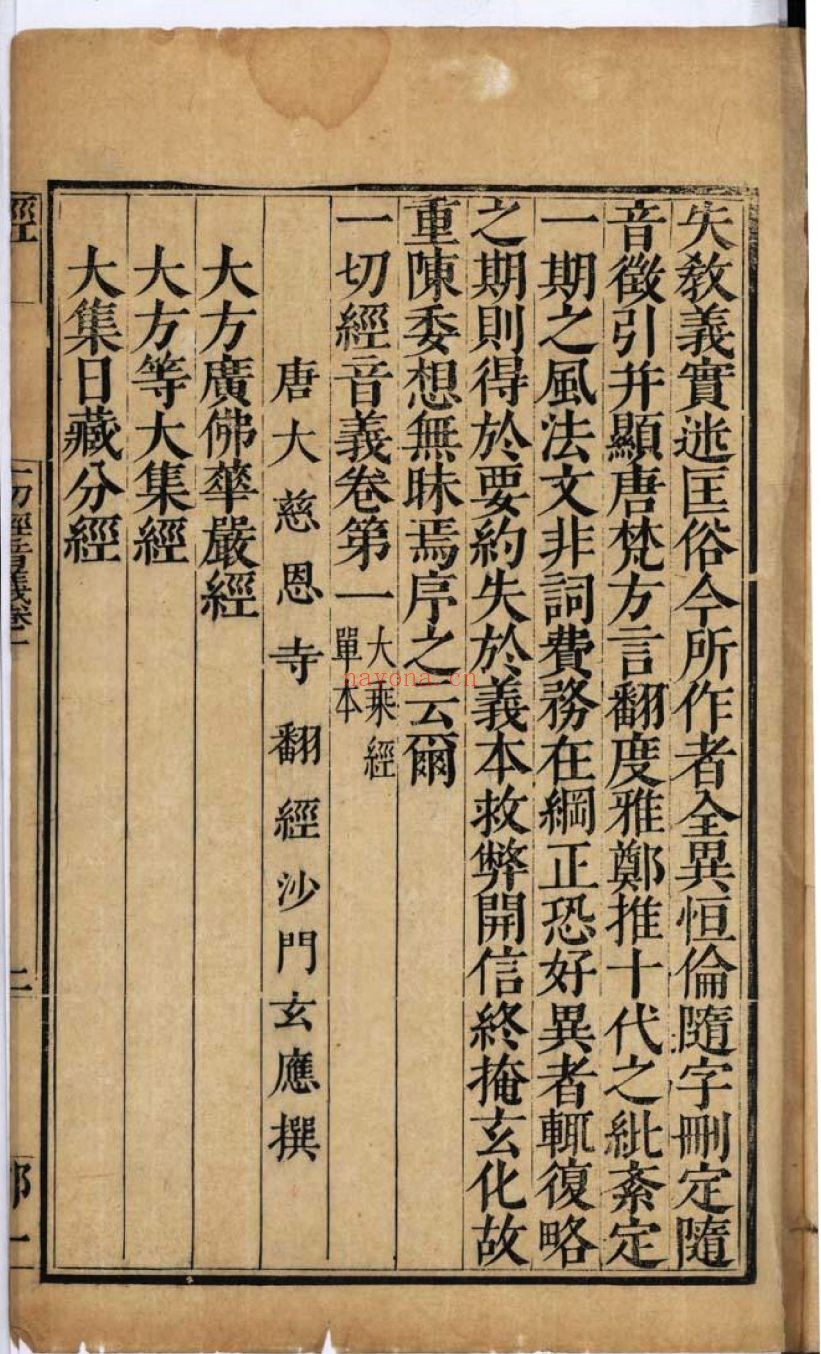 失教義實迷匡俗今所作者全異恒倫隨字刪定隨
音徵引并顯唐梵方言翻度雅鄭推十代之紕紊定
一期之風法文非詞費務在綱正恐好異者輒復略
之期則得於要約失於義本救弊開信終掩玄化故
重陳委想無昧焉序之云爾
一切經音義卷第一 大乘經 單本
唐大慈恩寺翻經沙門玄應撰
大方廣佛華嚴經
大方等大集經
大集日藏分經
經 一切經音義卷一 二 郡一
nayona.cn